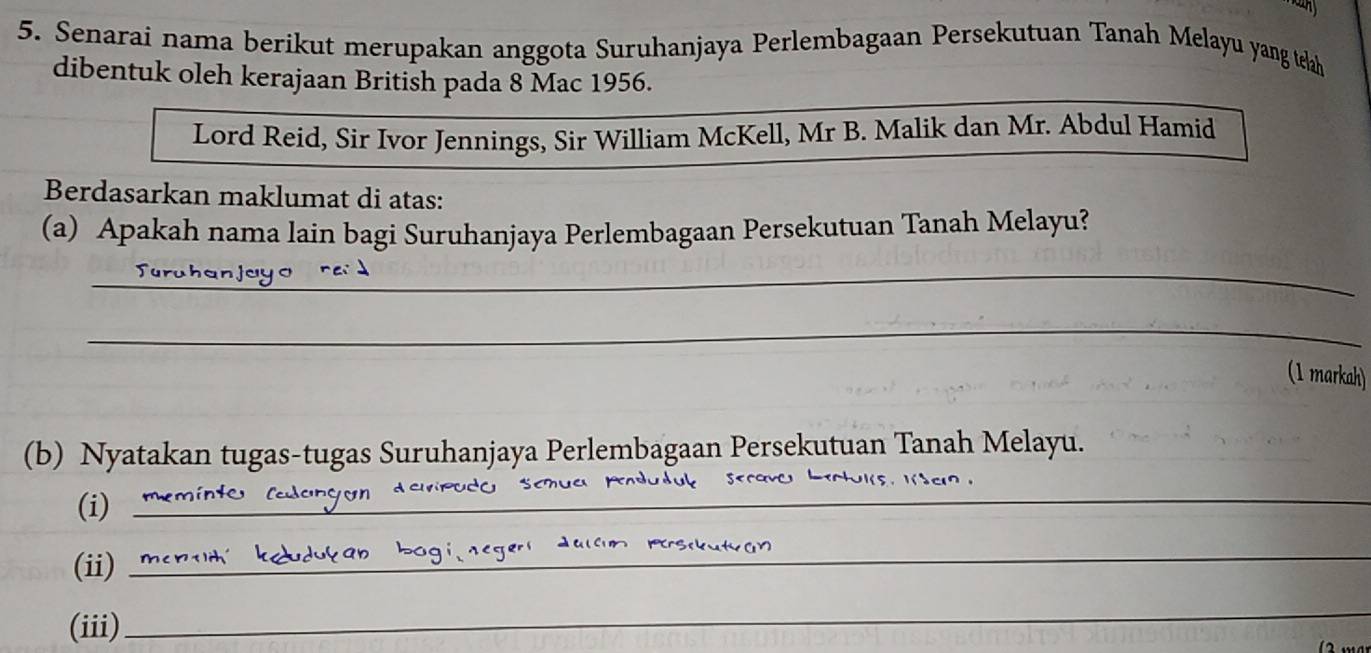 5. Senarai nama berikut merupakan anggota Suruhanjaya Perlembagaan Persekutuan Tanah Melayu yang telah
dibentuk oleh kerajaan British pada 8 Mac 1956.
Lord Reid, Sir Ivor Jennings, Sir William McKell, Mr B. Malik dan Mr. Abdul Hamid
Berdasarkan maklumat di atas:
(a) Apakah nama lain bagi Suruhanjaya Perlembagaan Persekutuan Tanah Melayu?
suruhanjaya reid
(1 markah)
(b) Nyatakan tugas-tugas Suruhanjaya Perlembagaan Persekutuan Tanah Melayu.
(i) meminta cadangan daripada semua penduduk secara bertulis. lisan.
(ii) meneliti kedudukan bagi negeri dalam persekutuan
(iii)